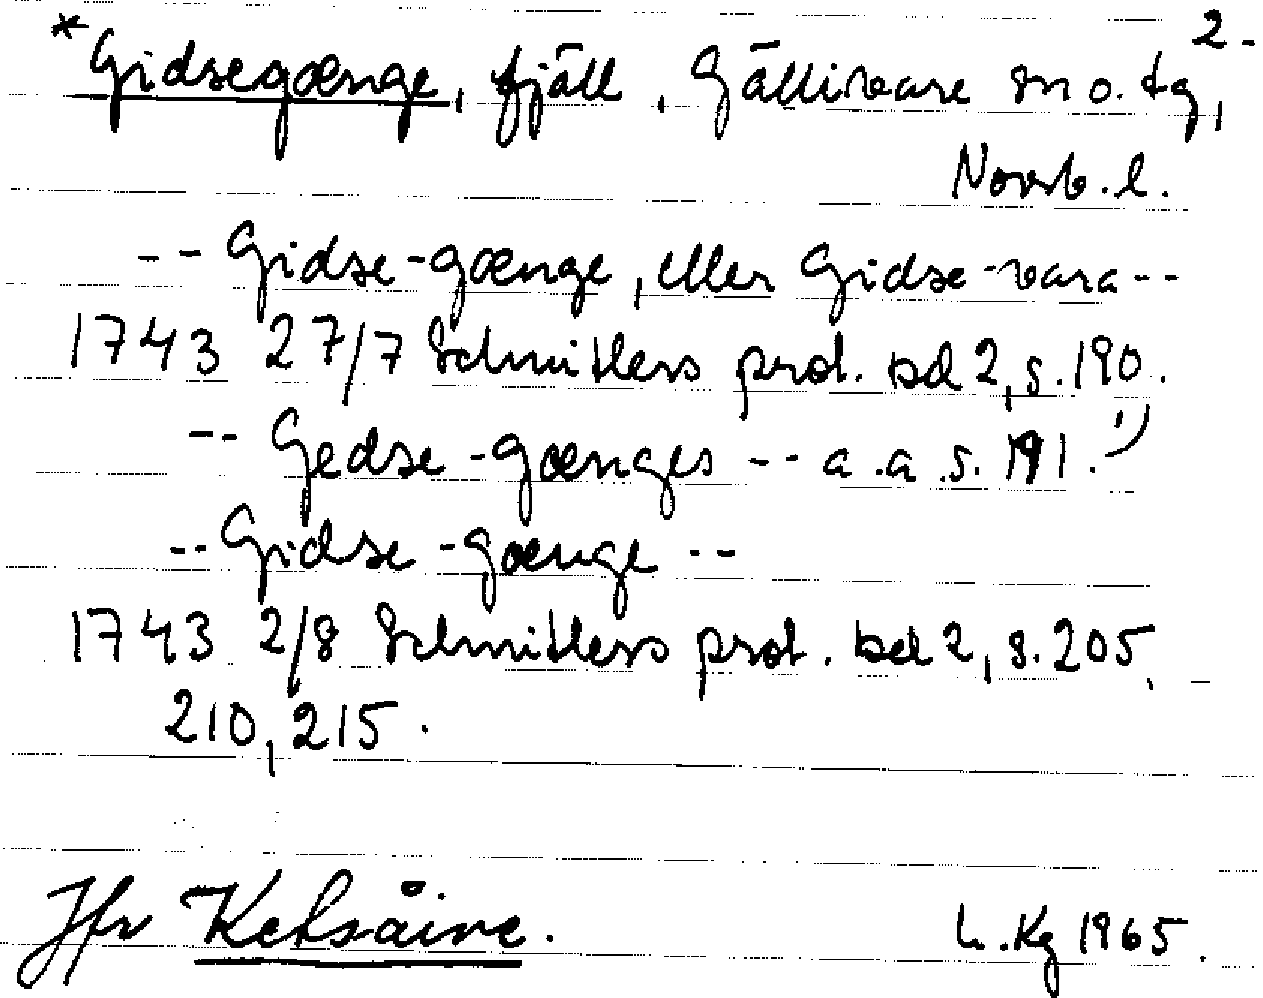 2-
*Gidsegænge, fjäll, Gällivare sn o. tg,
Norrb. l.
-- Gidse-gænge, eller Gidse-vara --
1743 27/7 Schnitlers prot. bd 2, s. 190.
-- Gedse-gænges -- a.a s. 191.¹)
-- Gidse-gænge --
1743 2/8 Schnitlers prot. bd 2, s. 205,
210, 215.
Jfr Ketsåive.
L. Kg 1965.